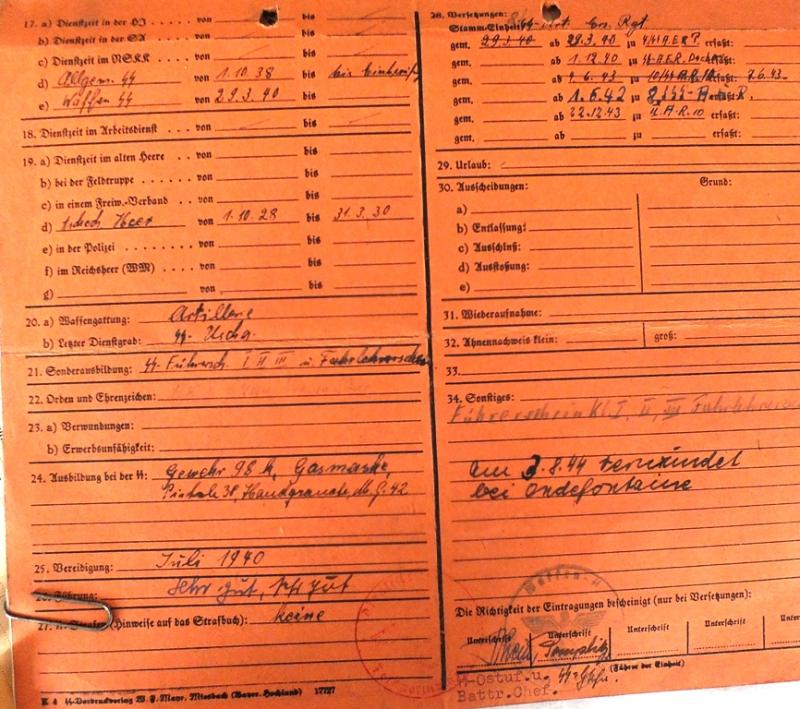 17. a) Dienstzeit in der HJ von bis
b) Dienstzeit in der SA von bis
c) Dienstzeit im NSKK von bis
d) Allgem. SS von 1.10.38 bis bis
e) Waffen SS von 29.3.40 bis
18. Dienstzeit im Arbeitsdienst von bis
19. a) Dienstzeit im alten Heere von bis
b) bei der Feldtruppe von bis
c) in einem Freiw.-Verband von bis
d) tschech. Heer von 1.10.28 bis 31.3.30
e) in der Polizei von bis
f) im Reichsheer (WM) von bis
g) von bis
20. a) Waffengattung: Artillerie
b) Letzter Dienstgrad: SS-Uscha.
21. Sonderausbildung: SS-Führersch. I II III u. Fahrlehrerschein
22. Orden und Ehrenzeichen:
23. a) Verwundungen:
b) Erwerbsunfähigkeit:
24. Ausbildung bei der SS: Gewehr 98 k, Gasmaske,
Pistole 38, Handgranate, M.G. 42
25. Vereidigung: Juli 1940
26. Führung: sehr gut, sehr gut
27. (Hinweise auf das Strafbuch): keine
K 4 SS-Vordruckverlag W. F. Mayr, Miesbach (Bayer. Hochland) 17727
28. Versetzungen:
Stamm-Einheit: Ers. Rgt.
gem. 29.3.40 ab 29.3.40 zu erfaßt:
gem. ab 1.12.40 zu erfaßt:
gem. ab zu erfaßt: 7.6.43
gem. ab 1.6.42
gem. ab 22.12.43 zu II. A.R. 10 erfaßt:
gem. ab zu erfaßt:
29. Urlaub:
30. Ausscheidungen: Grund:
a)
b) Entlassung:
c) Ausschluß:
d) Ausstoßung:
e)
31. Wiederaufnahme:
32. Ahnennachweis klein: groß:
33.
34. Sonstiges:
Führerschein Kl. I, II, III Fahrlehrer
am 3.8.44 verwundet
bei Ondefontaine
Die Richtigkeit der Eintragungen bescheinigt (nur bei Versetzungen):
Unterschrift Unterschrift Unterschrift Unterschrift
(Führer der Einheit)
SS-Ostuf.u.
Battr.Chef.